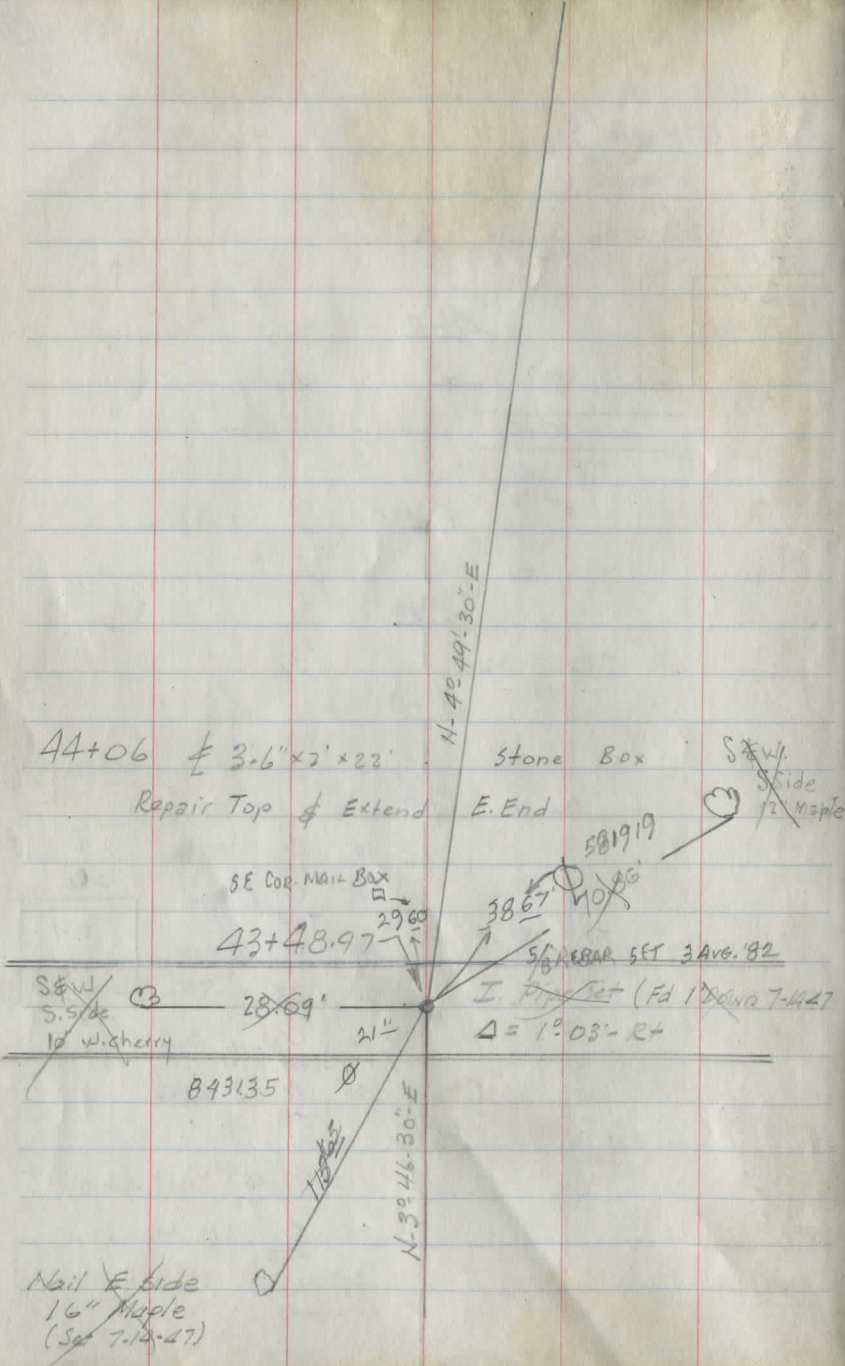 N-4°-49'-30"-E
44+06 ₵ 3.6"x2'x22' Stone Box
Repair Top & Extend E. End
S&W.
S Side
12" Maple
581919
SE COR. MAIL BOX
2960
3867'
43+48.97
5/8 REBAR SET 3 AUG. '82
S&W
S. Side
10" W. Cherry
28.69'
I. Pipe Set (Fd 1' Down 7-14-47
21"
Δ = 1°03'- Rt
843135
N-3°-46'-30"-E
Nail E Side
16" Maple
(Set 7-14-47)